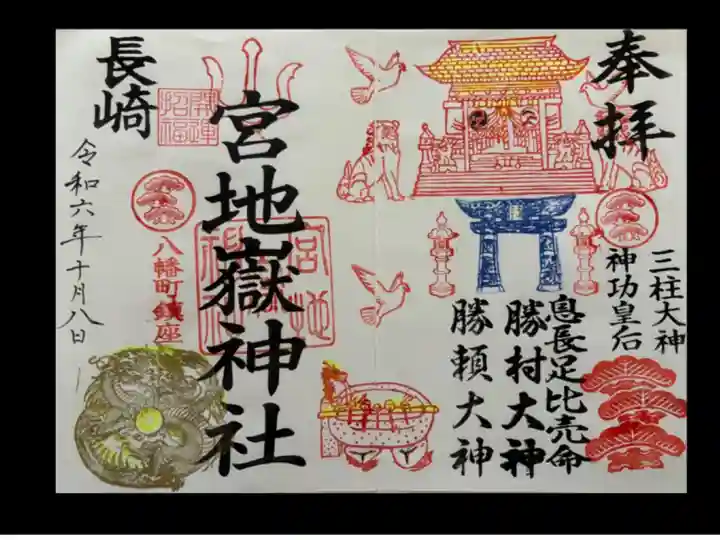 奉拝
三柱大神
神功皇后
息長足比売命
勝村大神
勝頼大神
宮地嶽神社
開運
招福
八幡町鎮座
長崎
令和六年十月八日